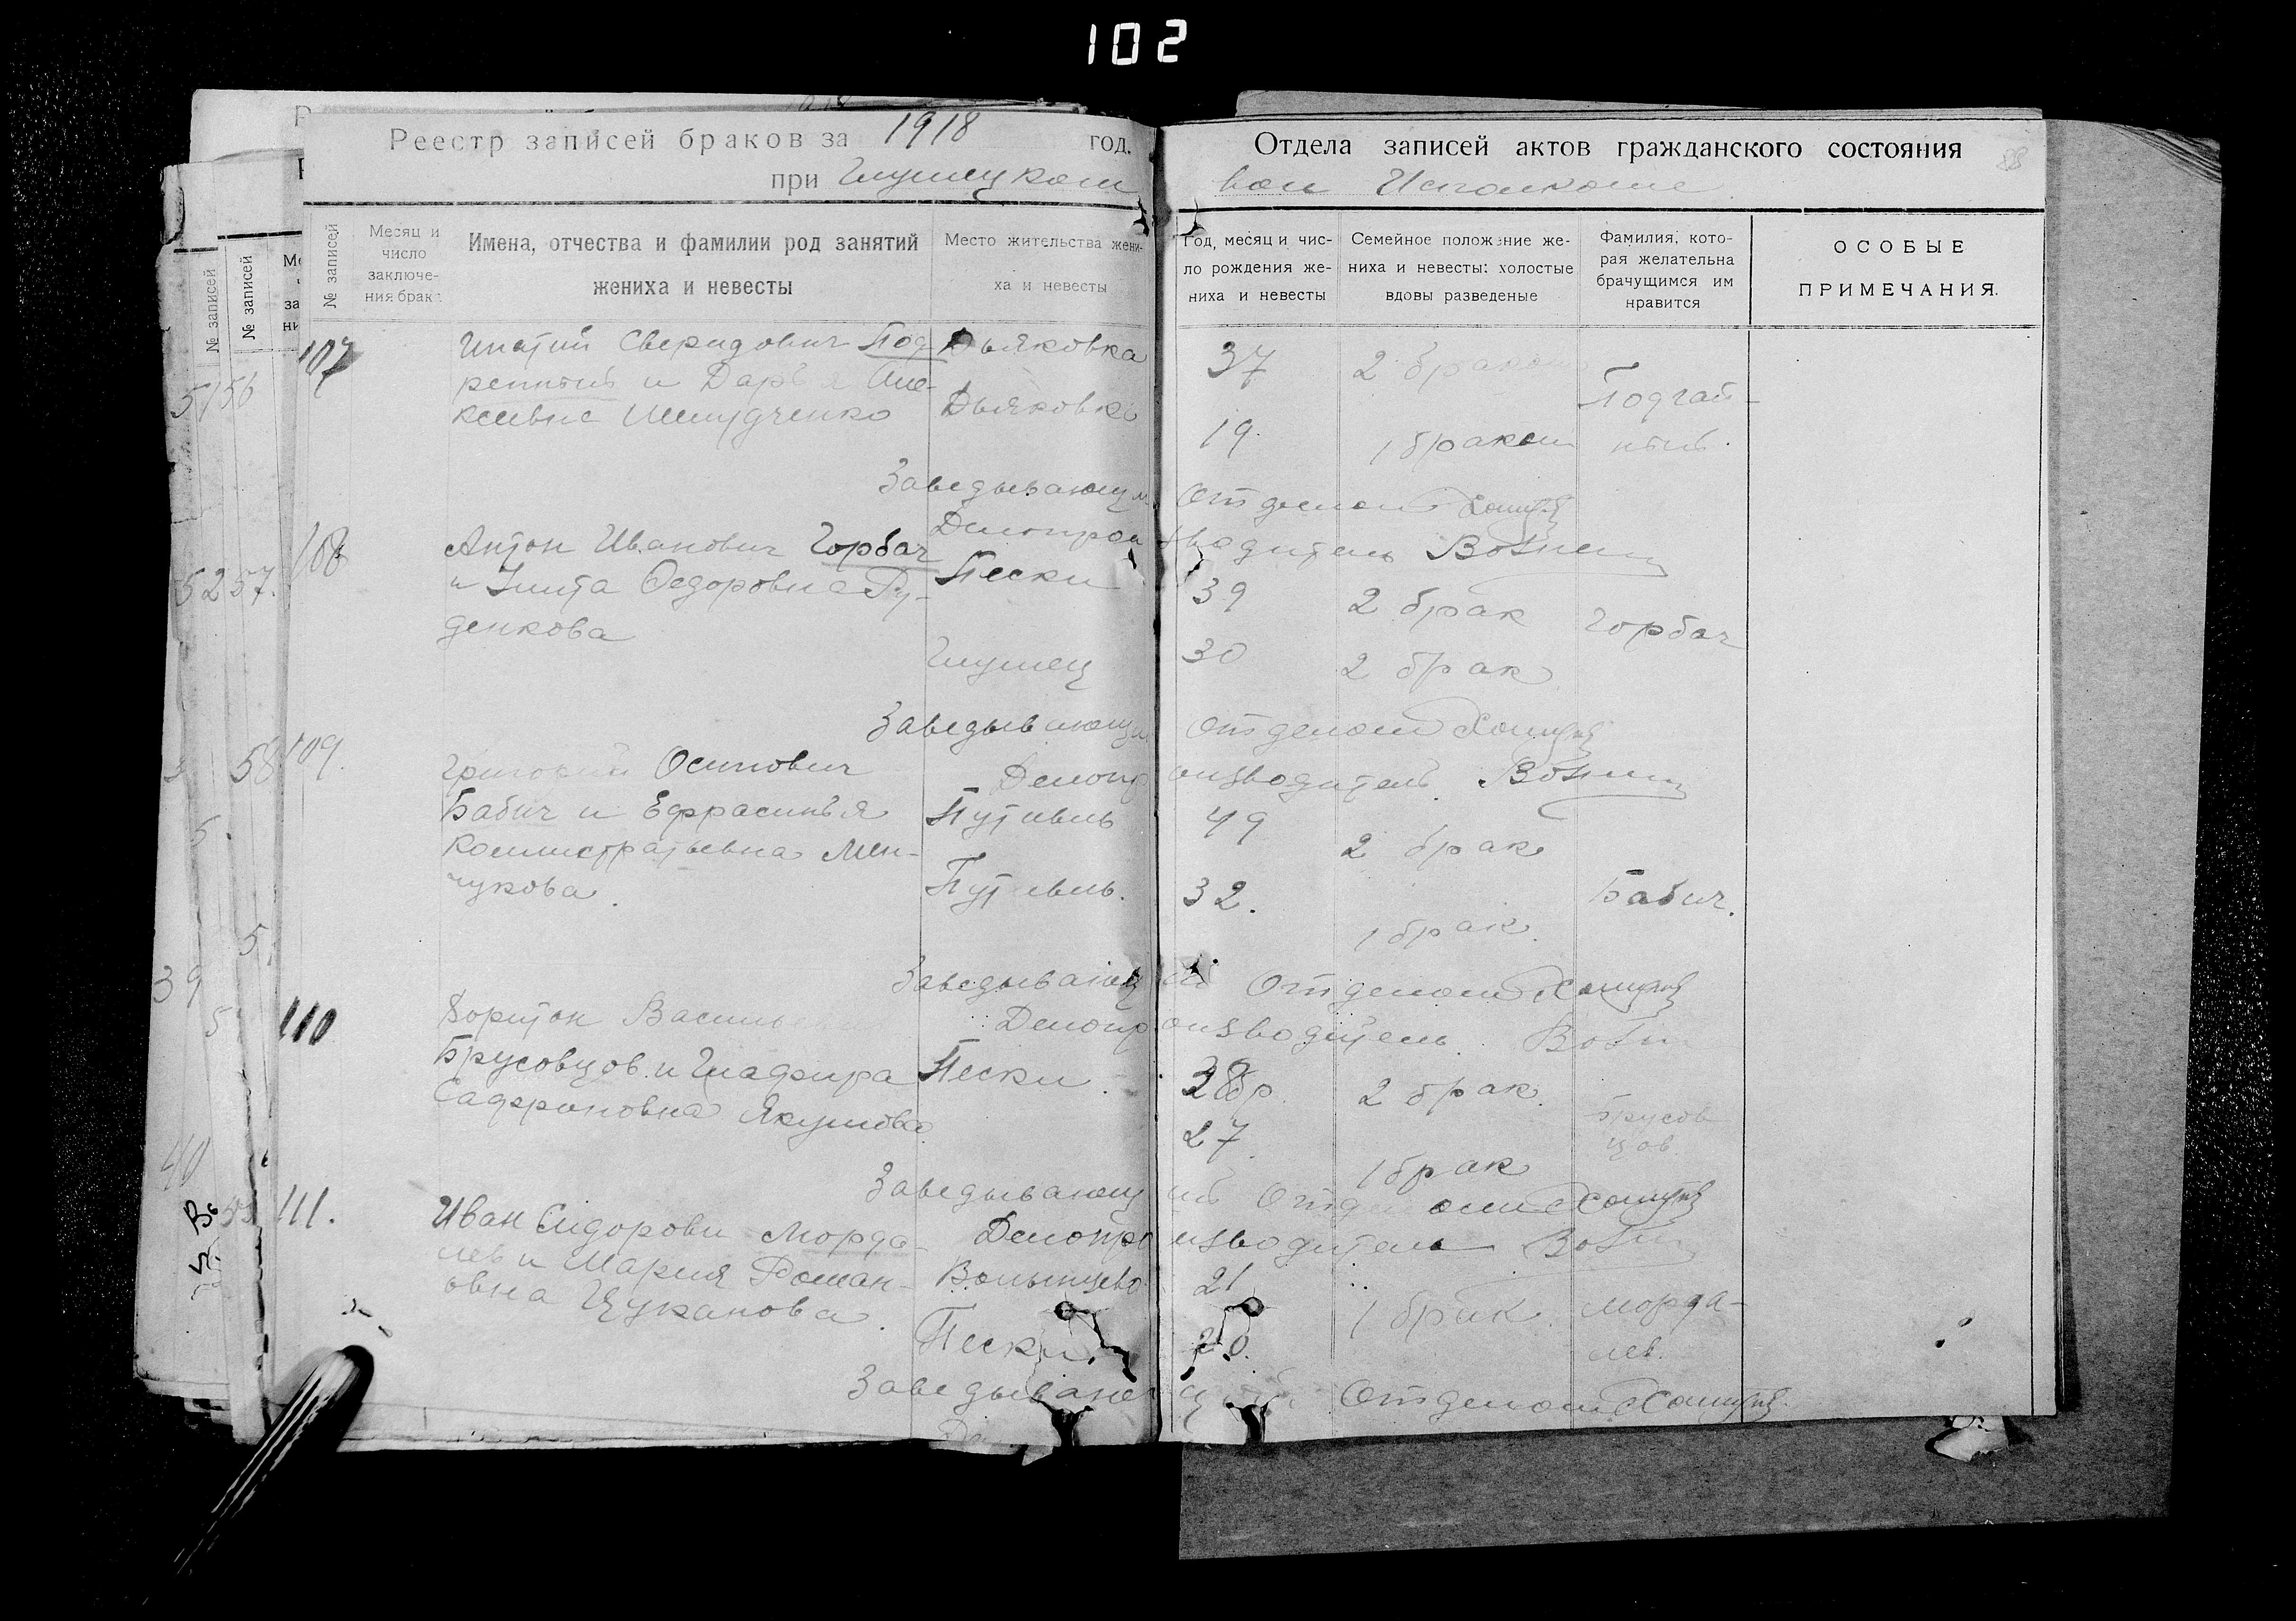 102
Реестр записей браков за 1918 год.
при Глушецком
Отдела записей актов гражданского состояния
вол Исполкоме
№ записей
Месяц и число заключения брака
Имена, отчества и фамилии род занятий жениха и невесты
Место жительства жениха и невесты
Год, месяц и число рождения жениха и невесты
Семейное положение жениха и невесты: холостые вдовы разведеные
Фамилия, которая желательна брачущимся им нравится
ОСОБЫЕ ПРИМЕЧАНИЯ.
107
Ипатий Свиридович Под-
Дьяковка
37
2 браком
и Дарья Але-
Подгай-
ный.
ксевна
Дьяковка
19.
1 браком
Заведывающий Отделом
Делопроизводитель
108
Антон Иванович Горбач
Пески
39
2 брак
Горбач
и Федоровна Ру-
денкова
Глушец
30
2 брак
Заведывающий Отделом
Делопроизводитель
109.
Григорий Осипович
Бабич и Ефрасинья
Путивль
49
2 брак
Мен-
чукова.
Путивль.
32.
1 брак.
Бабич.
Заведывающий Отделом
Делопроизводитель
110
Василь
Брусовцов и Глафира
Пески
2 брак.
Брусов
цов
Сафроновна Якушова
27.
1 брак
Заведывающий Отделом
Делопроизводитель
111.
Иван Сидорови Морда-
лев и Мария Роман-
Волынцево
21
1 брак.
Морда-
лев.
овна Цуканова.
Пески.
20.
Заведывающий Отделом
51
56
52
57.
58
39
40